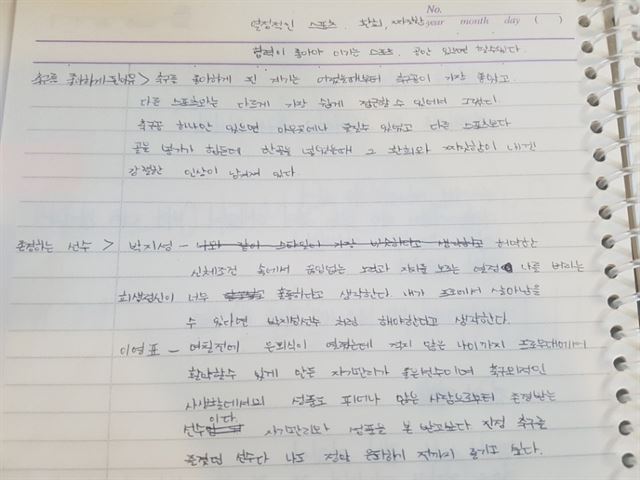 No.
열정적인 스포츠. 환희, 짜릿함 year month day ( )
협력이 좋아야 이기는 스포츠. 공만 있으면 할수있다.
축구를 좋아하게 된 이유 > 축구를 좋아하게 된 계기는 어렸을때부터 축구공이 가장 좋았고
다른 스포츠와는 다르게 가장 쉽게 접근할 수 있어서 그랬다.
축구공 하나만 있으면 아무곳에나 즐길수 있었고 다른 스포츠보다
골을 넣기가 힘든데 한골을 넣었을때 그 환희와 짜릿함이 내겐
강렬한 인상이 남겨져 있다.
존경하는 선수 > 박지성 - 나와 같이 스타일이 가장 비슷하다고 생각하고 허약한
신체조건 속에서 끊임없는 노력과 자리를 노리는 열정 나를 버리는
희생정신이 너무 훌륭하다고 생각한다. 내가 프로에서 살아남을
수 있다면 박지성선수 처럼 해야한다고 생각한다.
이영표 - 며칠전에 은퇴식이 열렸는데 적지 않은 나이까지 프로무대에서
활약할수 있게 만든 자기관리가 좋은선수이며 축구외적인
사생활에서의 성품도 뛰어나 많은 사람으로부터 존경받는
선수이다. 자기관리와 성품을 본 받고보다 진정 축구를
즐겼던 선수다 나도 정말 은퇴하기 전까지 즐기고 싶다.